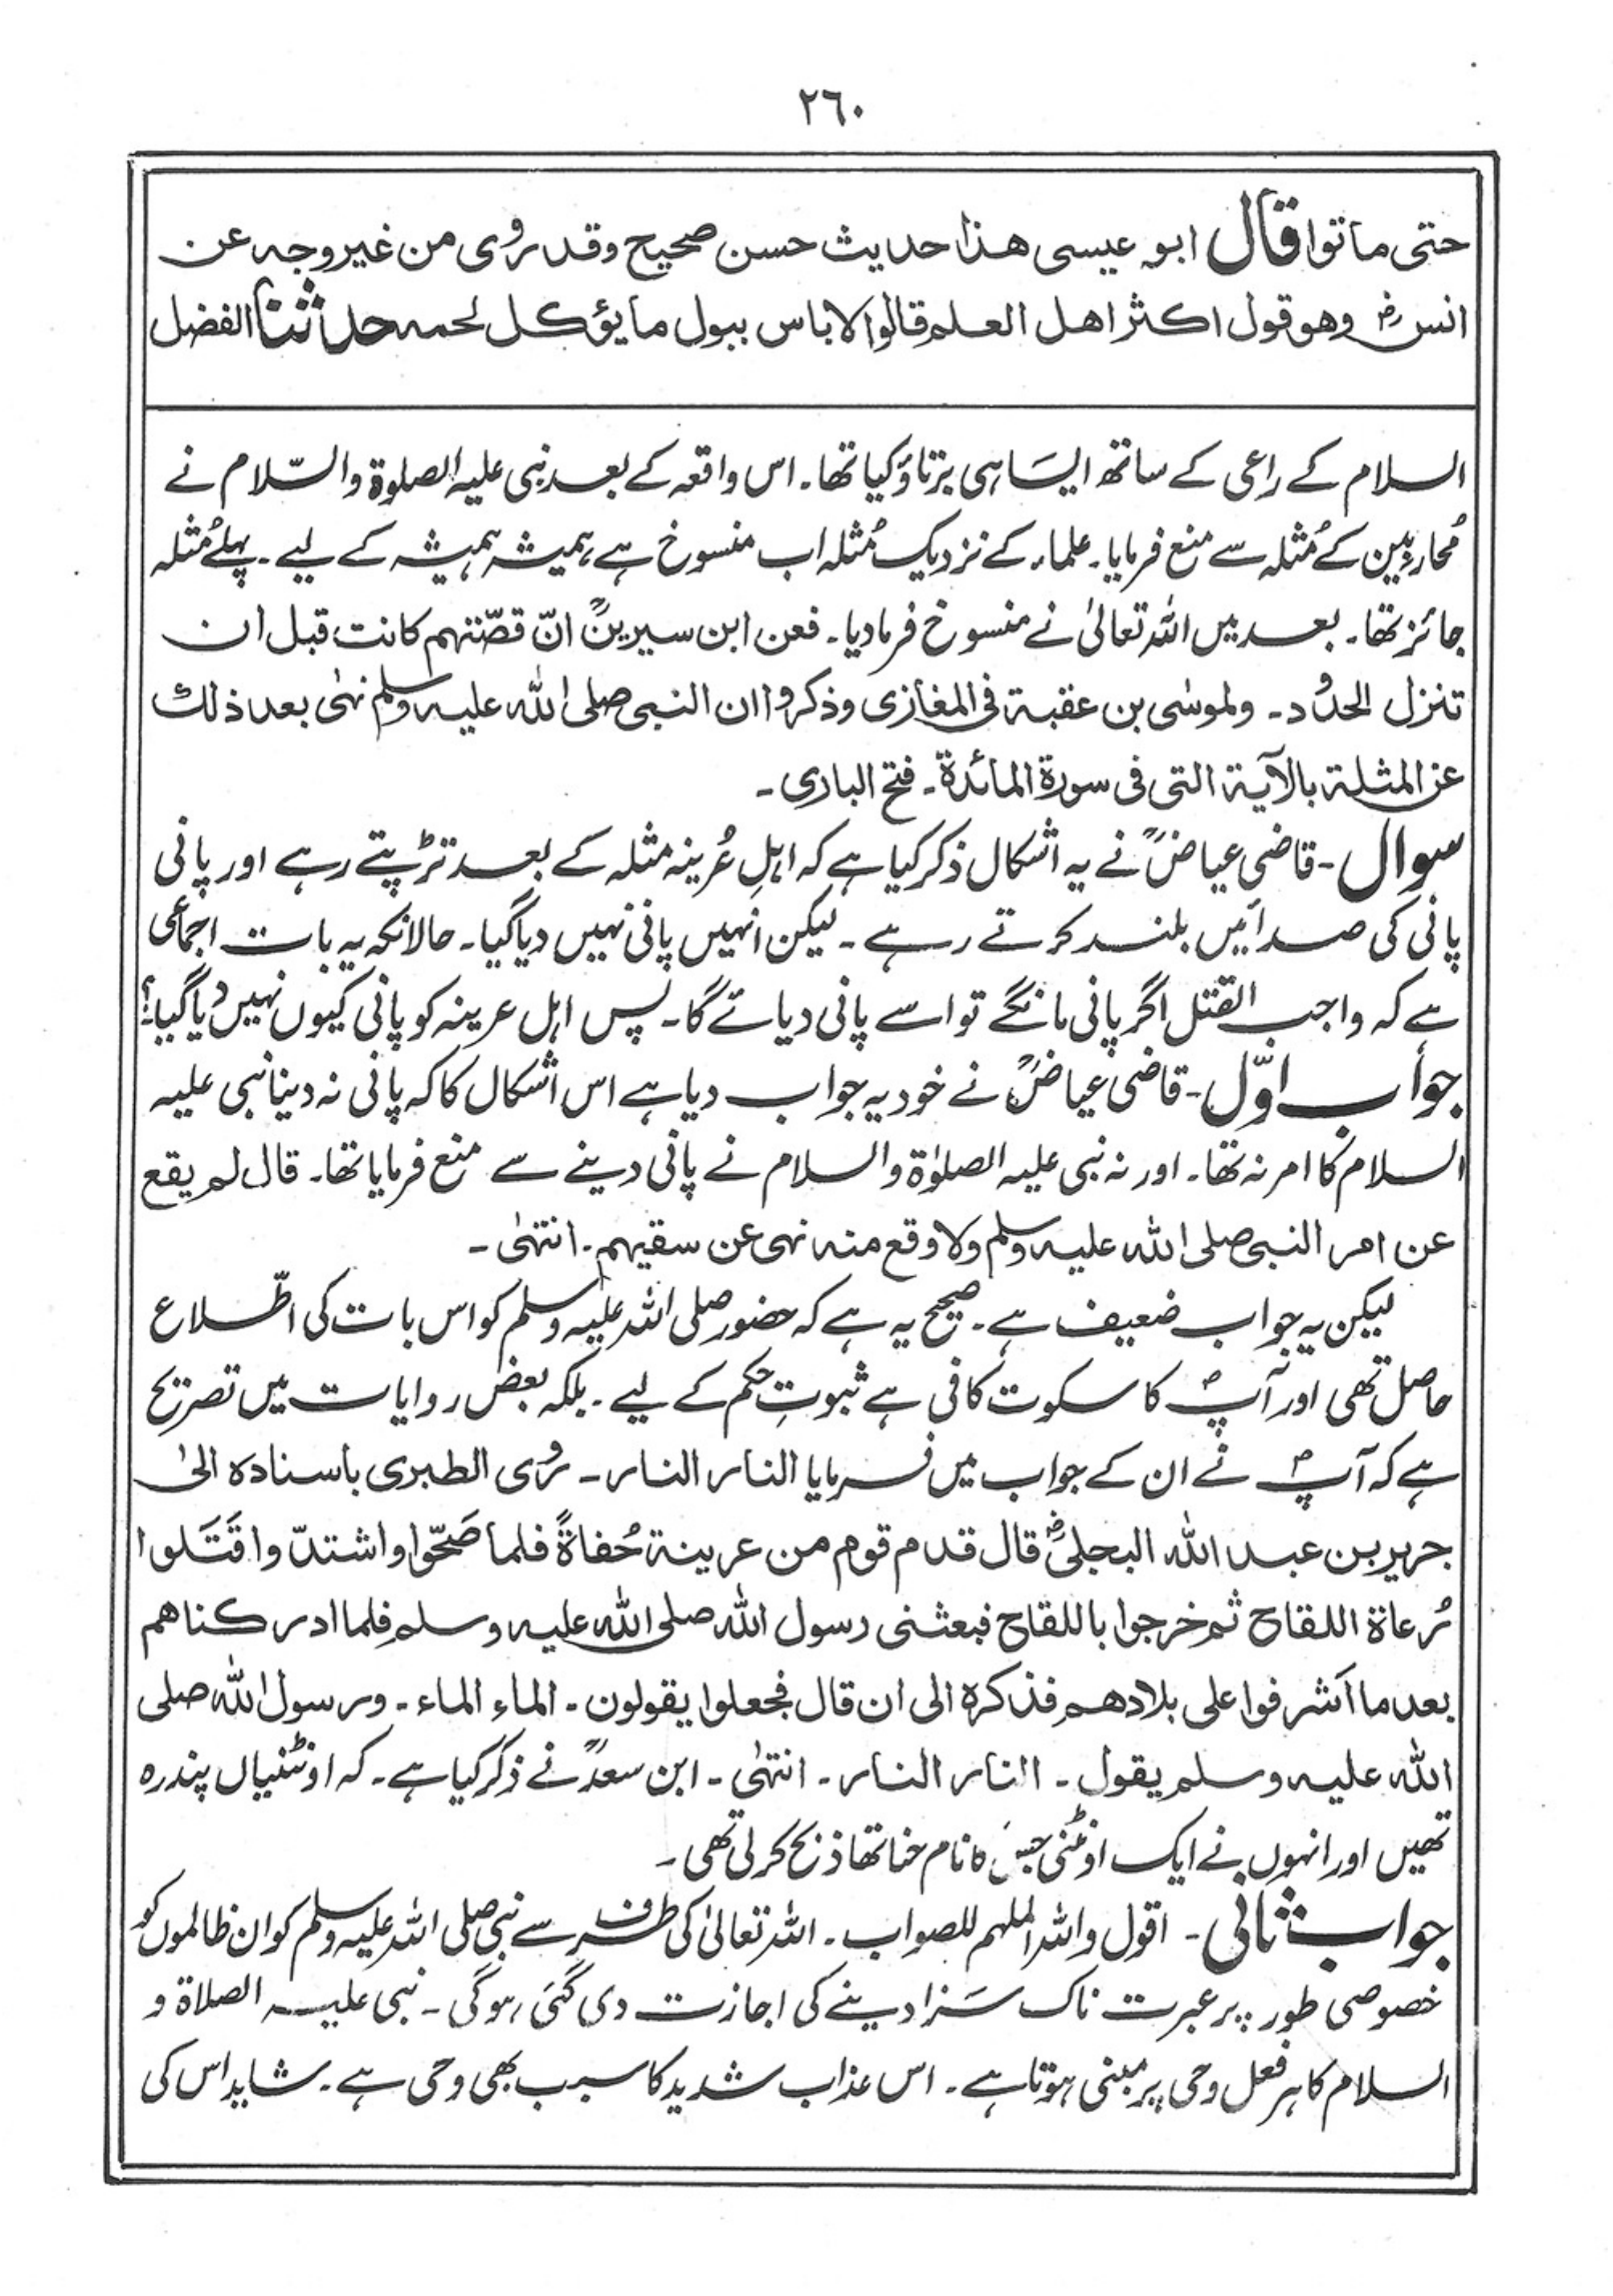 ٢٦٠
حتی ماتوا قال ابو عیسی هذا حدیث حسن صحیح وقد روی من غیر وجه عن
انسؓ وهو قول اکثر اهل العلم قالوا لا باس ببول ما یؤکل لحمه حدثنا الفضل
السلام کے راعی کے ساتھ ایسا ہی برتاؤ کیا تھا۔ اس واقعہ کے بعد نبی علیہ الصلوۃ والسّلام نے
مُحاربین کے مُثلہ سے منع فرمایا۔ علماء کے نزدیک مُثلہ اب منسوخ ہے ہمیشہ ہمیشہ کے لیے۔ پہلے مُثلہ
جائز تھا۔ بعد میں اللہ تعالیٰ نے منسوخ فرمادیا۔ فعن ابن سیرینؒ انّ قصّتهم کانت قبل ان
تنزل الحدود۔ ولموسٰی بن عقبة فی المغازی وذکروا ان النبی صلی الله علیه وسلم نهٰی بعد ذلک
عن المثلة بالآیة التی فی سورة المائدة۔ فتح الباری۔
سوال۔ قاضی عیاضؒ نے یہ اشکال ذکر کیا ہے کہ اہلِ عُرینہ مثلہ کے بعد تڑپتے رہے اور پانی
پانی کی صدائیں بلند کرتے رہے۔ لیکن انہیں پانی نہیں دیا گیا۔ حالانکہ یہ بات اجماعی
ہے کہ واجب القتل اگر پانی مانگے تو اسے پانی دیا جائے گا۔ پس اہل عرینہ کو پانی کیوں نہیں دیا گیا؟
جواب اوّل۔ قاضی عیاضؒ نے خود یہ جواب دیا ہے اس اشکال کا کہ پانی نہ دینا نبی علیہ
السلام کا امر نہ تھا۔ اور نہ نبی علیہ الصلوٰۃ والسلام نے پانی دینے سے منع فرمایا تھا۔ قال لم یقع
عن امر النبی صلی الله علیه وسلم ولا وقع منه نهی عن سقیهم۔ انتهٰی۔
لیکن یہ جواب ضعیف ہے۔ صحیح یہ ہے کہ حضور صلی اللہ علیہ وسلم کو اس بات کی اطّلاع
حاصل تھی اور آپؐ کا سکوت کافی ہے ثبوتِ حکم کے لیے۔ بلکہ بعض روایات میں تصریح
ہے کہ آپؐ نے ان کے جواب میں فرمایا النار النار۔ روی الطبری باسناده الیٰ
جریر بن عبد الله البجلیؓ قال قدم قوم من عرینة حُفاةً فلما صَحّوا واشتدّوا قَتَلوا
رُعاة اللقاح ثم خرجوا باللقاح فبعثنی رسول الله صلی الله علیه وسلم فلما ادرکناهم
بعد ما اَشرفوا علی بلادهم فذکره الی ان قال فجعلوا یقولون۔ الماء الماء۔ ورسول الله صلی
الله علیه وسلم یقول۔ النار النار۔ انتهٰی۔ ابن سعدؒ نے ذکر کیا ہے۔ کہ اونٹنیاں پندرہ
تھیں اور انہوں نے ایک اونٹنی جس کا نام حنا تھا ذبح کرلی تھی۔
جواب ثانی۔ اقول واللہ الملہم للصواب۔ اللہ تعالیٰ کی طرف سے نبی صلی اللہ علیہ وسلم کو ان ظالموں کو
خصوصی طور پر عبرت ناک سَزا دینے کی اجازت دی گئی ہوگی۔ نبی علیہ الصلاۃ و
السلام کا ہر فعل وحی پر مبنی ہوتا ہے۔ اس عذاب شدید کا سبب بھی وحی ہے۔ شاید اس کی